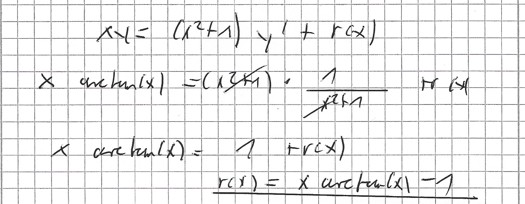 xy = (x²+1) y' + r(x)
x arctan(x) = (x²+1) · 1/(x²+1) + r(x)
x arctan(x) = 1 + r(x)
r(x) = x arctan(x) - 1